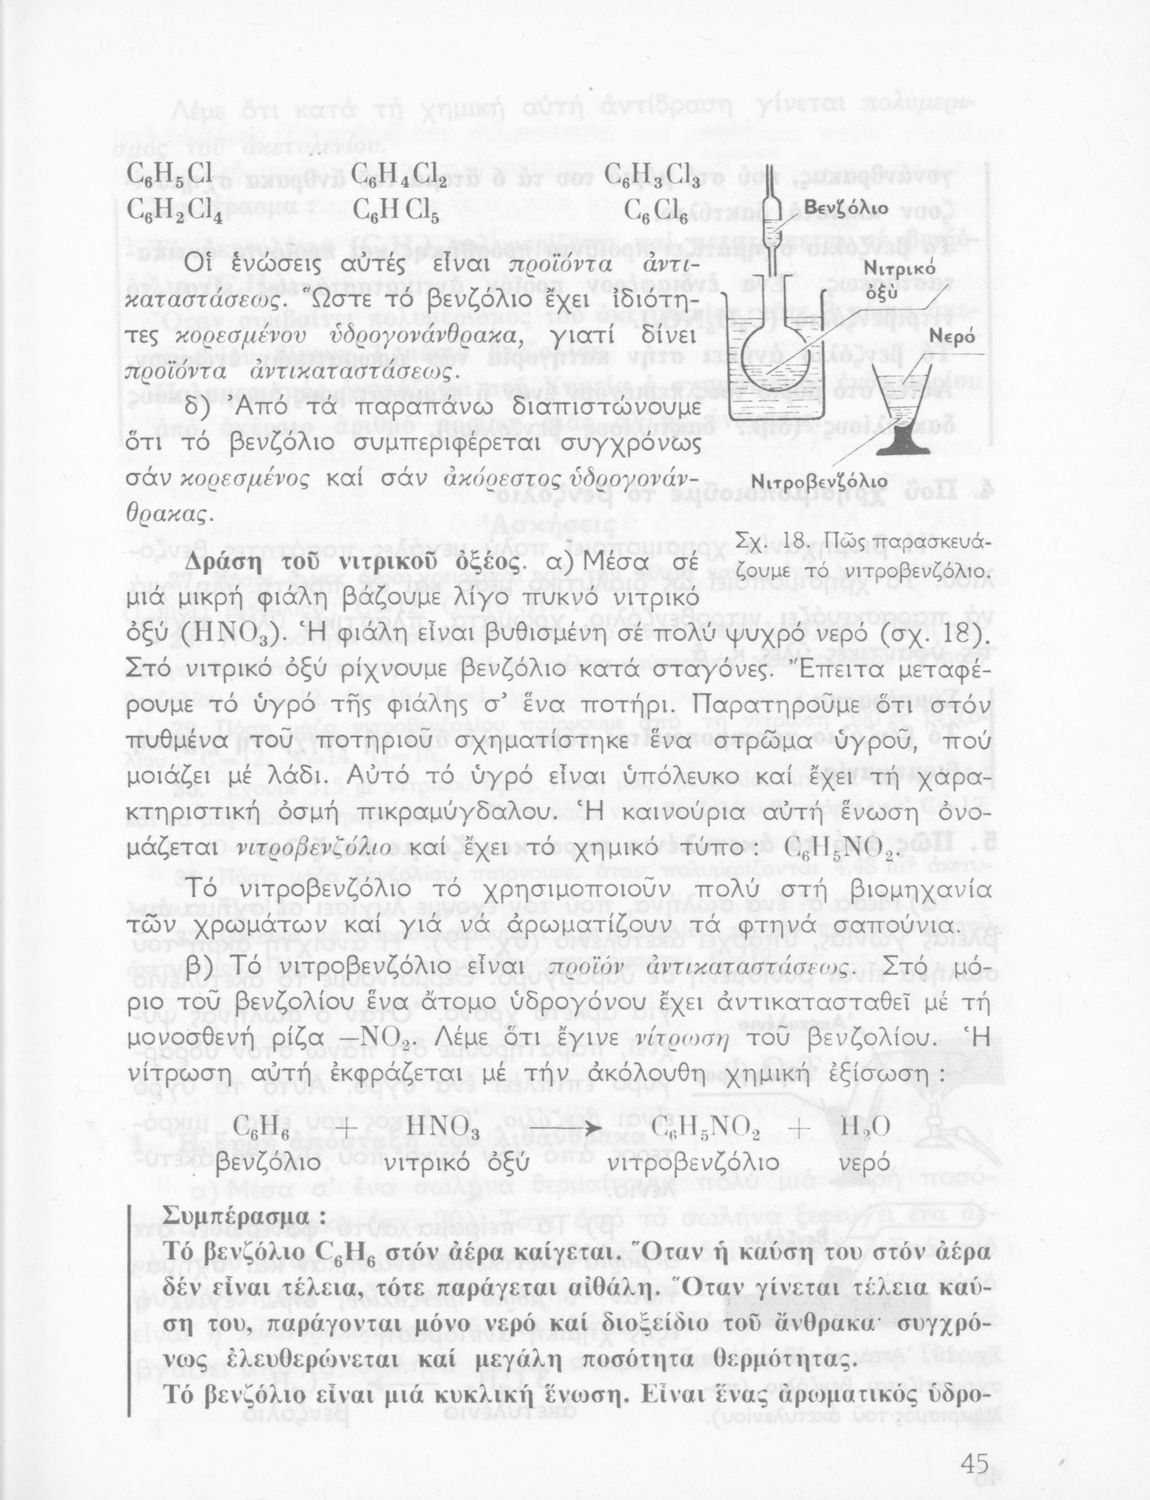 C₆H₅Cl C₆H₄Cl₂ C₆H₃Cl₃
C₆H₂Cl₄ C₆HCl₅ C₆Cl₆
Οἱ ἑνώσεις αὐτές εἶναι προϊόντα ἀντι-
καταστάσεως. Ὥστε τό βενζόλιο ἔχει ἰδιότη-
τες κορεσμένου ὑδρογονάνθρακα, γιατί δίνει
προϊόντα ἀντικαταστάσεως.
δ) Ἀπό τά παραπάνω διαπιστώνουμε
ὅτι τό βενζόλιο συμπεριφέρεται συγχρόνως
σάν κορεσμένος καί σάν ἀκόρεστος ὑδρογονάν-
θρακας.
Βενζόλιο
Νιτρικό
ὀξύ
Νερό
Νιτροβενζόλιο
Σχ. 18. Πῶς παρασκευά-
ζουμε τό νιτροβενζόλιο.
Δράση τοῦ νιτρικοῦ ὀξέος. α) Μέσα σέ
μιά μικρή φιάλη βάζουμε λίγο πυκνό νιτρικό
ὀξύ (HNO₃). Ἡ φιάλη εἶναι βυθισμένη σέ πολύ ψυχρό νερό (σχ. 18).
Στό νιτρικό ὀξύ ρίχνουμε βενζόλιο κατά σταγόνες. Ἔπειτα μεταφέ-
ρουμε τό ὑγρό τῆς φιάλης σ’ ἕνα ποτήρι. Παρατηροῦμε ὅτι στόν
πυθμένα τοῦ ποτηριοῦ σχηματίστηκε ἕνα στρῶμα ὑγροῦ, πού
μοιάζει μέ λάδι. Αὐτό τό ὑγρό εἶναι ὑπόλευκο καί ἔχει τή χαρα-
κτηριστική ὀσμή πικραμύγδαλου. Ἡ καινούρια αὐτή ἕνωση ὀνο-
μάζεται νιτροβενζόλιο καί ἔχει τό χημικό τύπο : C₆H₅NO₂.
Τό νιτροβενζόλιο τό χρησιμοποιοῦν πολύ στή βιομηχανία
τῶν χρωμάτων καί γιά νά ἀρωματίζουν τά φτηνά σαπούνια.
β) Τό νιτροβενζόλιο εἶναι προϊόν ἀντικαταστάσεως. Στό μό-
ριο τοῦ βενζολίου ἕνα ἄτομο ὑδρογόνου ἔχει ἀντικατασταθεῖ μέ τή
μονοσθενή ρίζα —NO₂. Λέμε ὅτι ἔγινε νίτρωση τοῦ βενζολίου. Ἡ
νίτρωση αὐτή ἐκφράζεται μέ τήν ἀκόλουθη χημική ἐξίσωση :
C₆H₆ + HNO₃ ⟶ C₆H₅NO₂ + H₂O
βενζόλιο νιτρικό ὀξύ νιτροβενζόλιο νερό
Συμπέρασμα :
Τό βενζόλιο C₆H₆ στόν ἀέρα καίγεται. Ὅταν ἡ καύση του στόν ἀέρα
δέν εἶναι τέλεια, τότε παράγεται αἰθάλη. Ὅταν γίνεται τέλεια καύ-
ση του, παράγονται μόνο νερό καί διοξείδιο τοῦ ἄνθρακα· συγχρό-
νως ἐλευθερώνεται καί μεγάλη ποσότητα θερμότητας.
Τό βενζόλιο εἶναι μιά κυκλική ἕνωση. Εἶναι ἕνας ἀρωματικός ὑδρο-
45